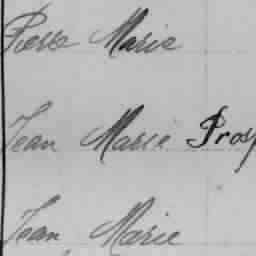 Pierre Marie
Jean Marie Prosp
Jean Marie